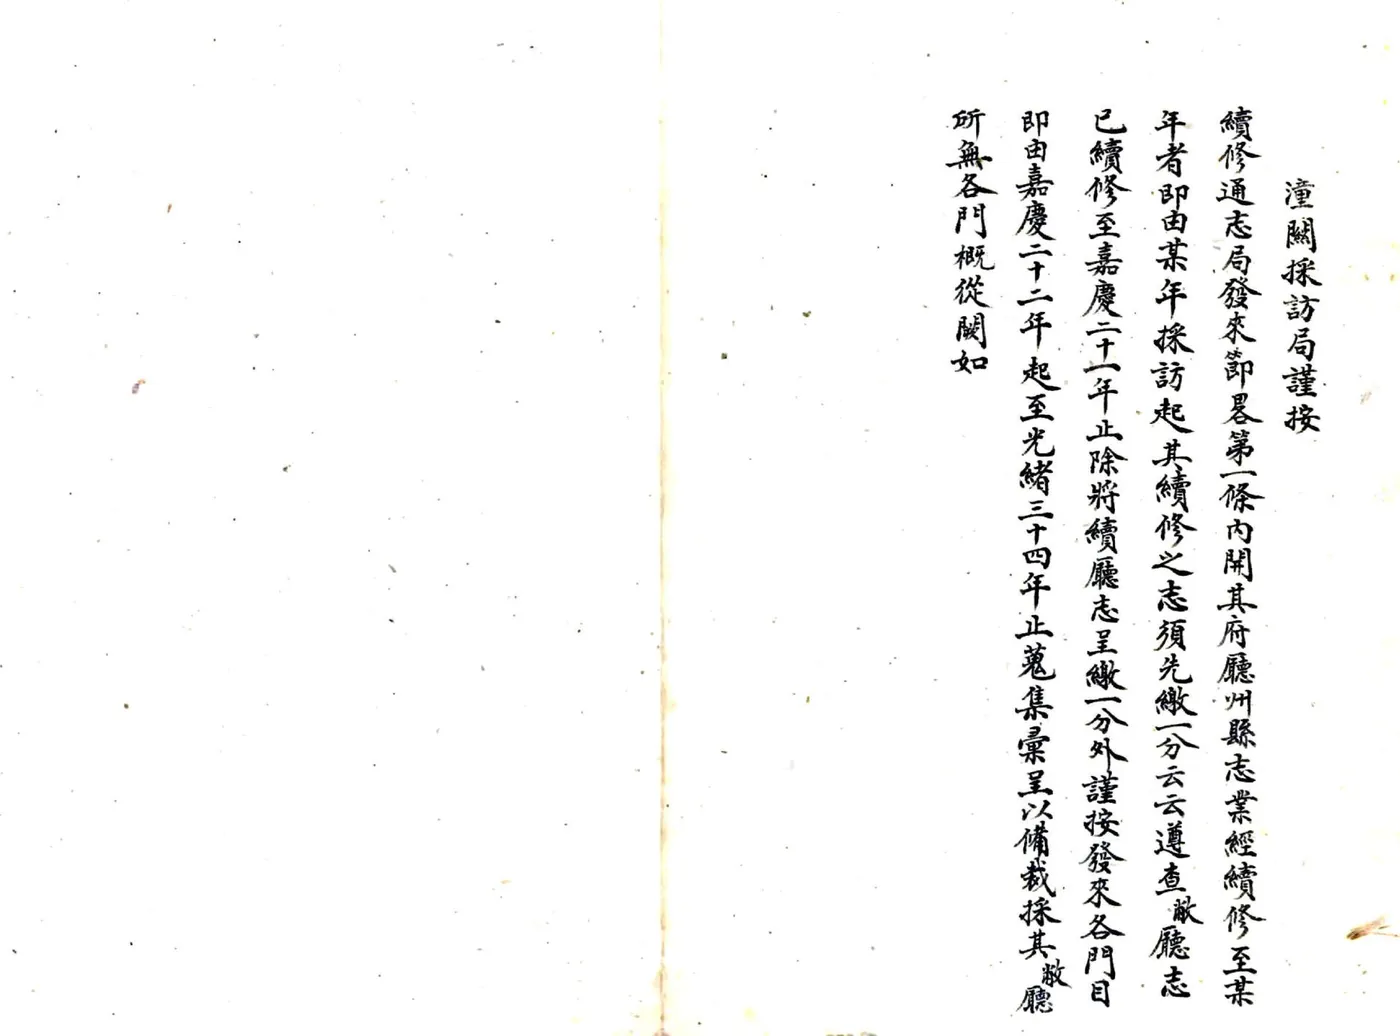 潼關採訪局謹按
續修通志局發來節畧第一條內開其府廳州縣志業經續修至某
年者即由某年採訪起其續修之志須先繳一分云云遵查敝廳志
已續修至嘉慶二十一年止除將續廳志呈繳一分外謹按發來各門目
即由嘉慶二十二年起至光緒三十四年止蒐集彙呈以備裁採其敝廳
所無各門概從闕如